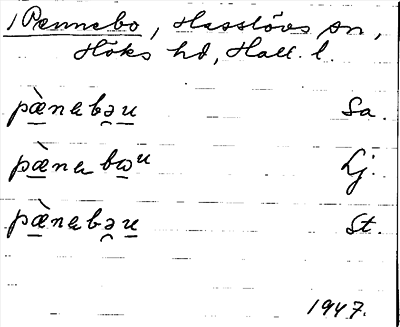 1 Pennebo, Hasslövs sn,
Höks hd, Hall. l.
pæ̀nabəu Sa.
pæ̀nabωᵘ Lj.
pæ̀nabəu St.
1947.